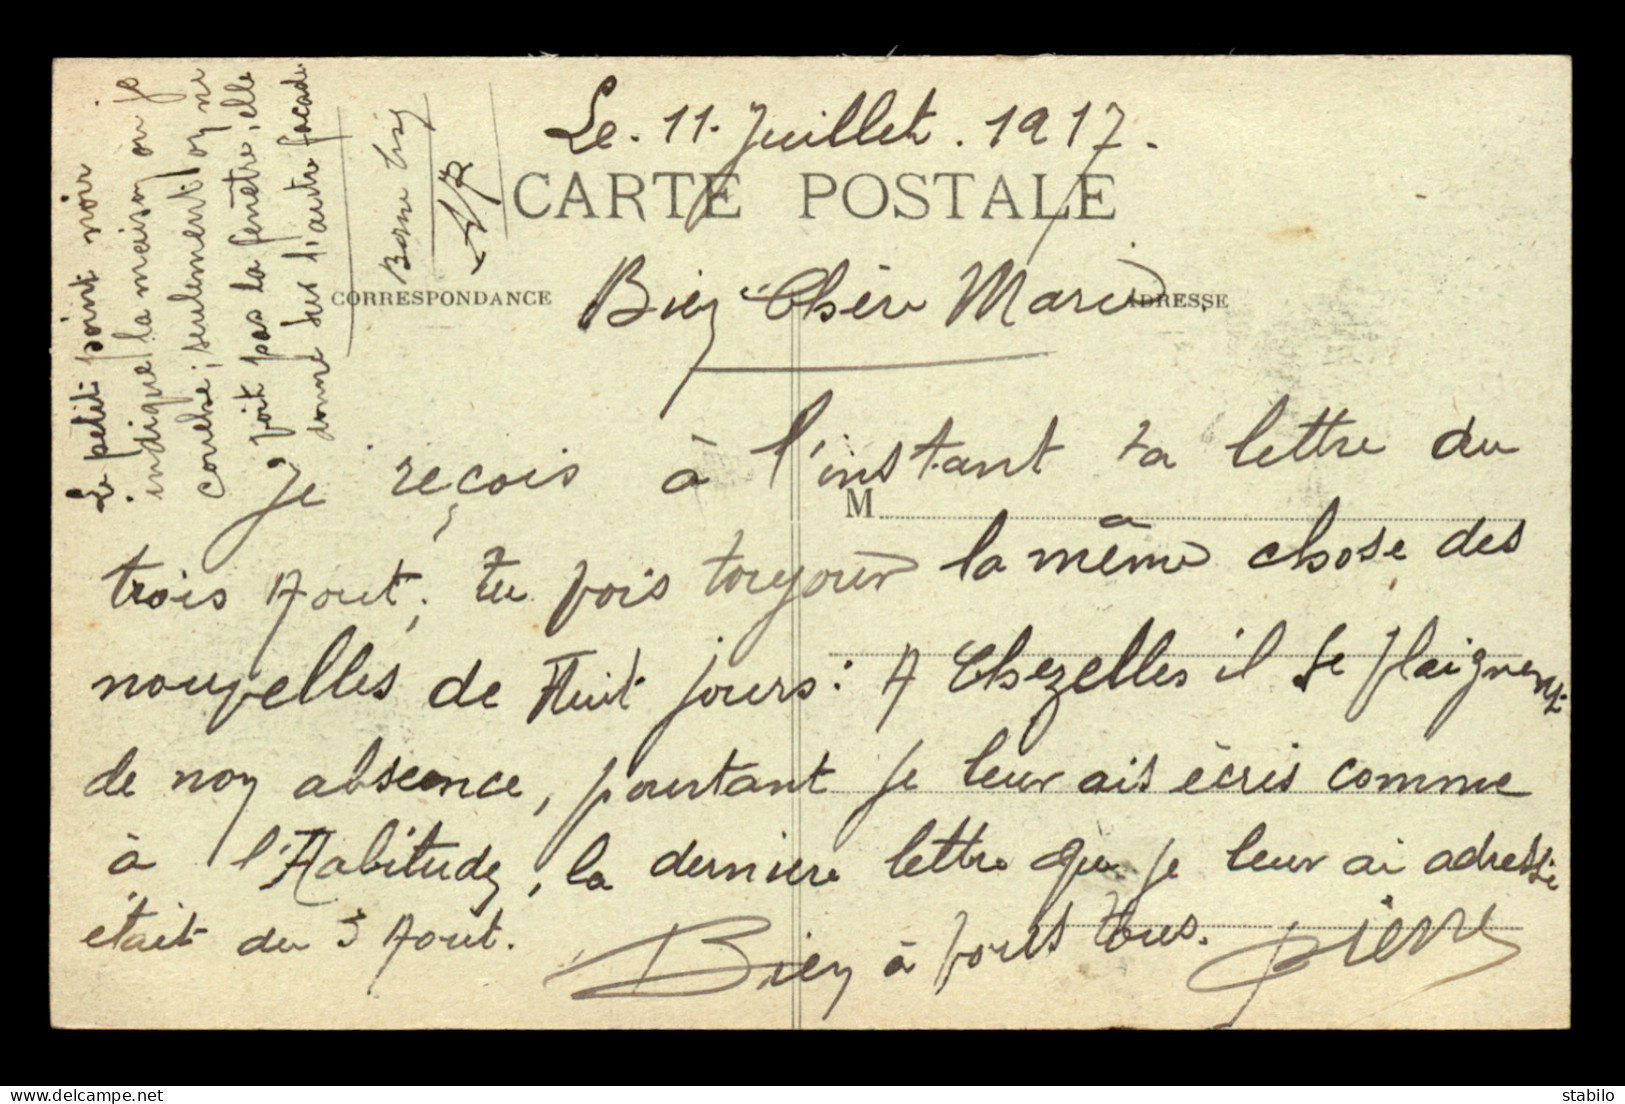 Le. 11. Juillet. 1917.
CARTE POSTALE
CORRESPONDANCE
ADRESSE
Bien Chère Marie,
M
Je reçois à l'instant ta lettre du
trois Aout, tu vois toujours la même chose des
nouvelles de Huit jours: A Chezelles il se plaignent
de non absence, pourtant je leur ais écris comme
à l'Habitude, la derniere lettre que je leur ai adressée
était du 3 Aout.
Bien à vous tous. Pierre
Le petit point noir
indique la maison ou je
couche; seulement on ne
voit pas la fenêtre, elle
donne sur l'autre façade
Bonne
delcampe.net
stabilo